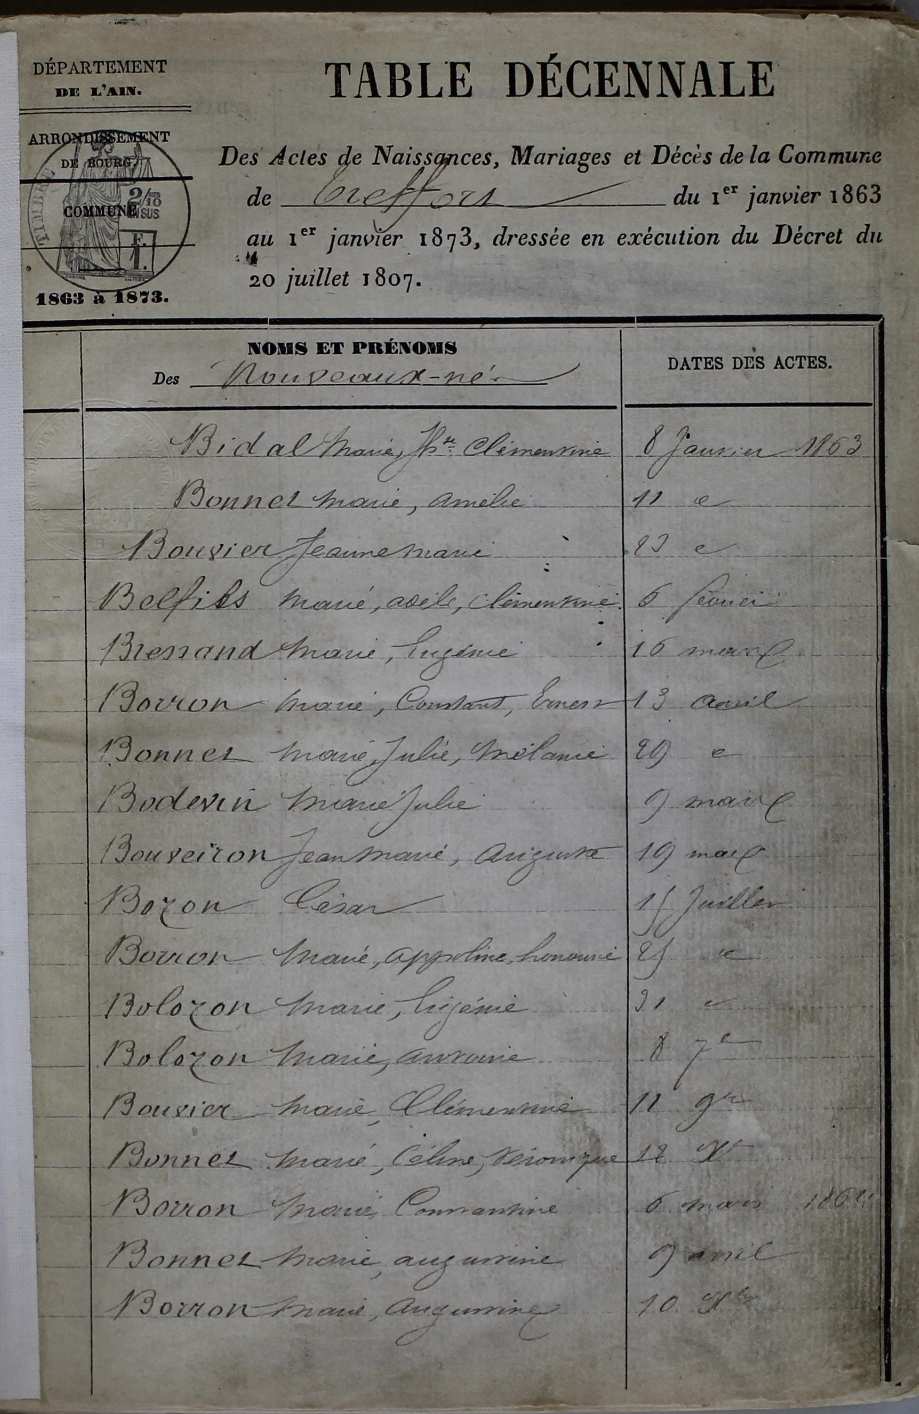 DÉPARTEMENT
DE L'AIN.
ARRONDISSEMENT
DE BOURG
COMMUNE
1863 à 1873.
TABLE DÉCENNALE
Des Actes de Naissances, Mariages et Décès de la Commune
de Treffort du 1er janvier 1863
au 1er janvier 1873, dressée en exécution du Décret du
20 juillet 1807.
NOMS ET PRÉNOMS
Des Nouveaux-né
DATES DES ACTES.
Bidal Marie, Clémentine 8 Janvier 1863
Bonnet Marie, Amélie 11 e
Bouvier Jeanne Marie 23 e
Belfils Marie, adèle, Clémentine 6 février
Bressand Marie, Eugénie 16 mars
Borron Marie, Constant, Ernest 13 avril
Bonnet Marie, Julie, Mélanie 29 e
Bodevin Marie Julie 9 mai
Bouveiron Jean Marie, Auguste 19 mai
Bozon César 15 Juillet
Borron Marie, appoline, honorine 25 e
Bolozon Marie, Eugénie 31 e
Bolozon Marie, antoine 8 7e
Bouvier Marie, Clémentine 11 9re
Bonnet Marie, Céline, Véronique 12 Xe
Borron Marie, Constantine 6 mars 1864
Bonnet Marie, augustine 9 avril
Borron Marie, Augustine 10 Xbre